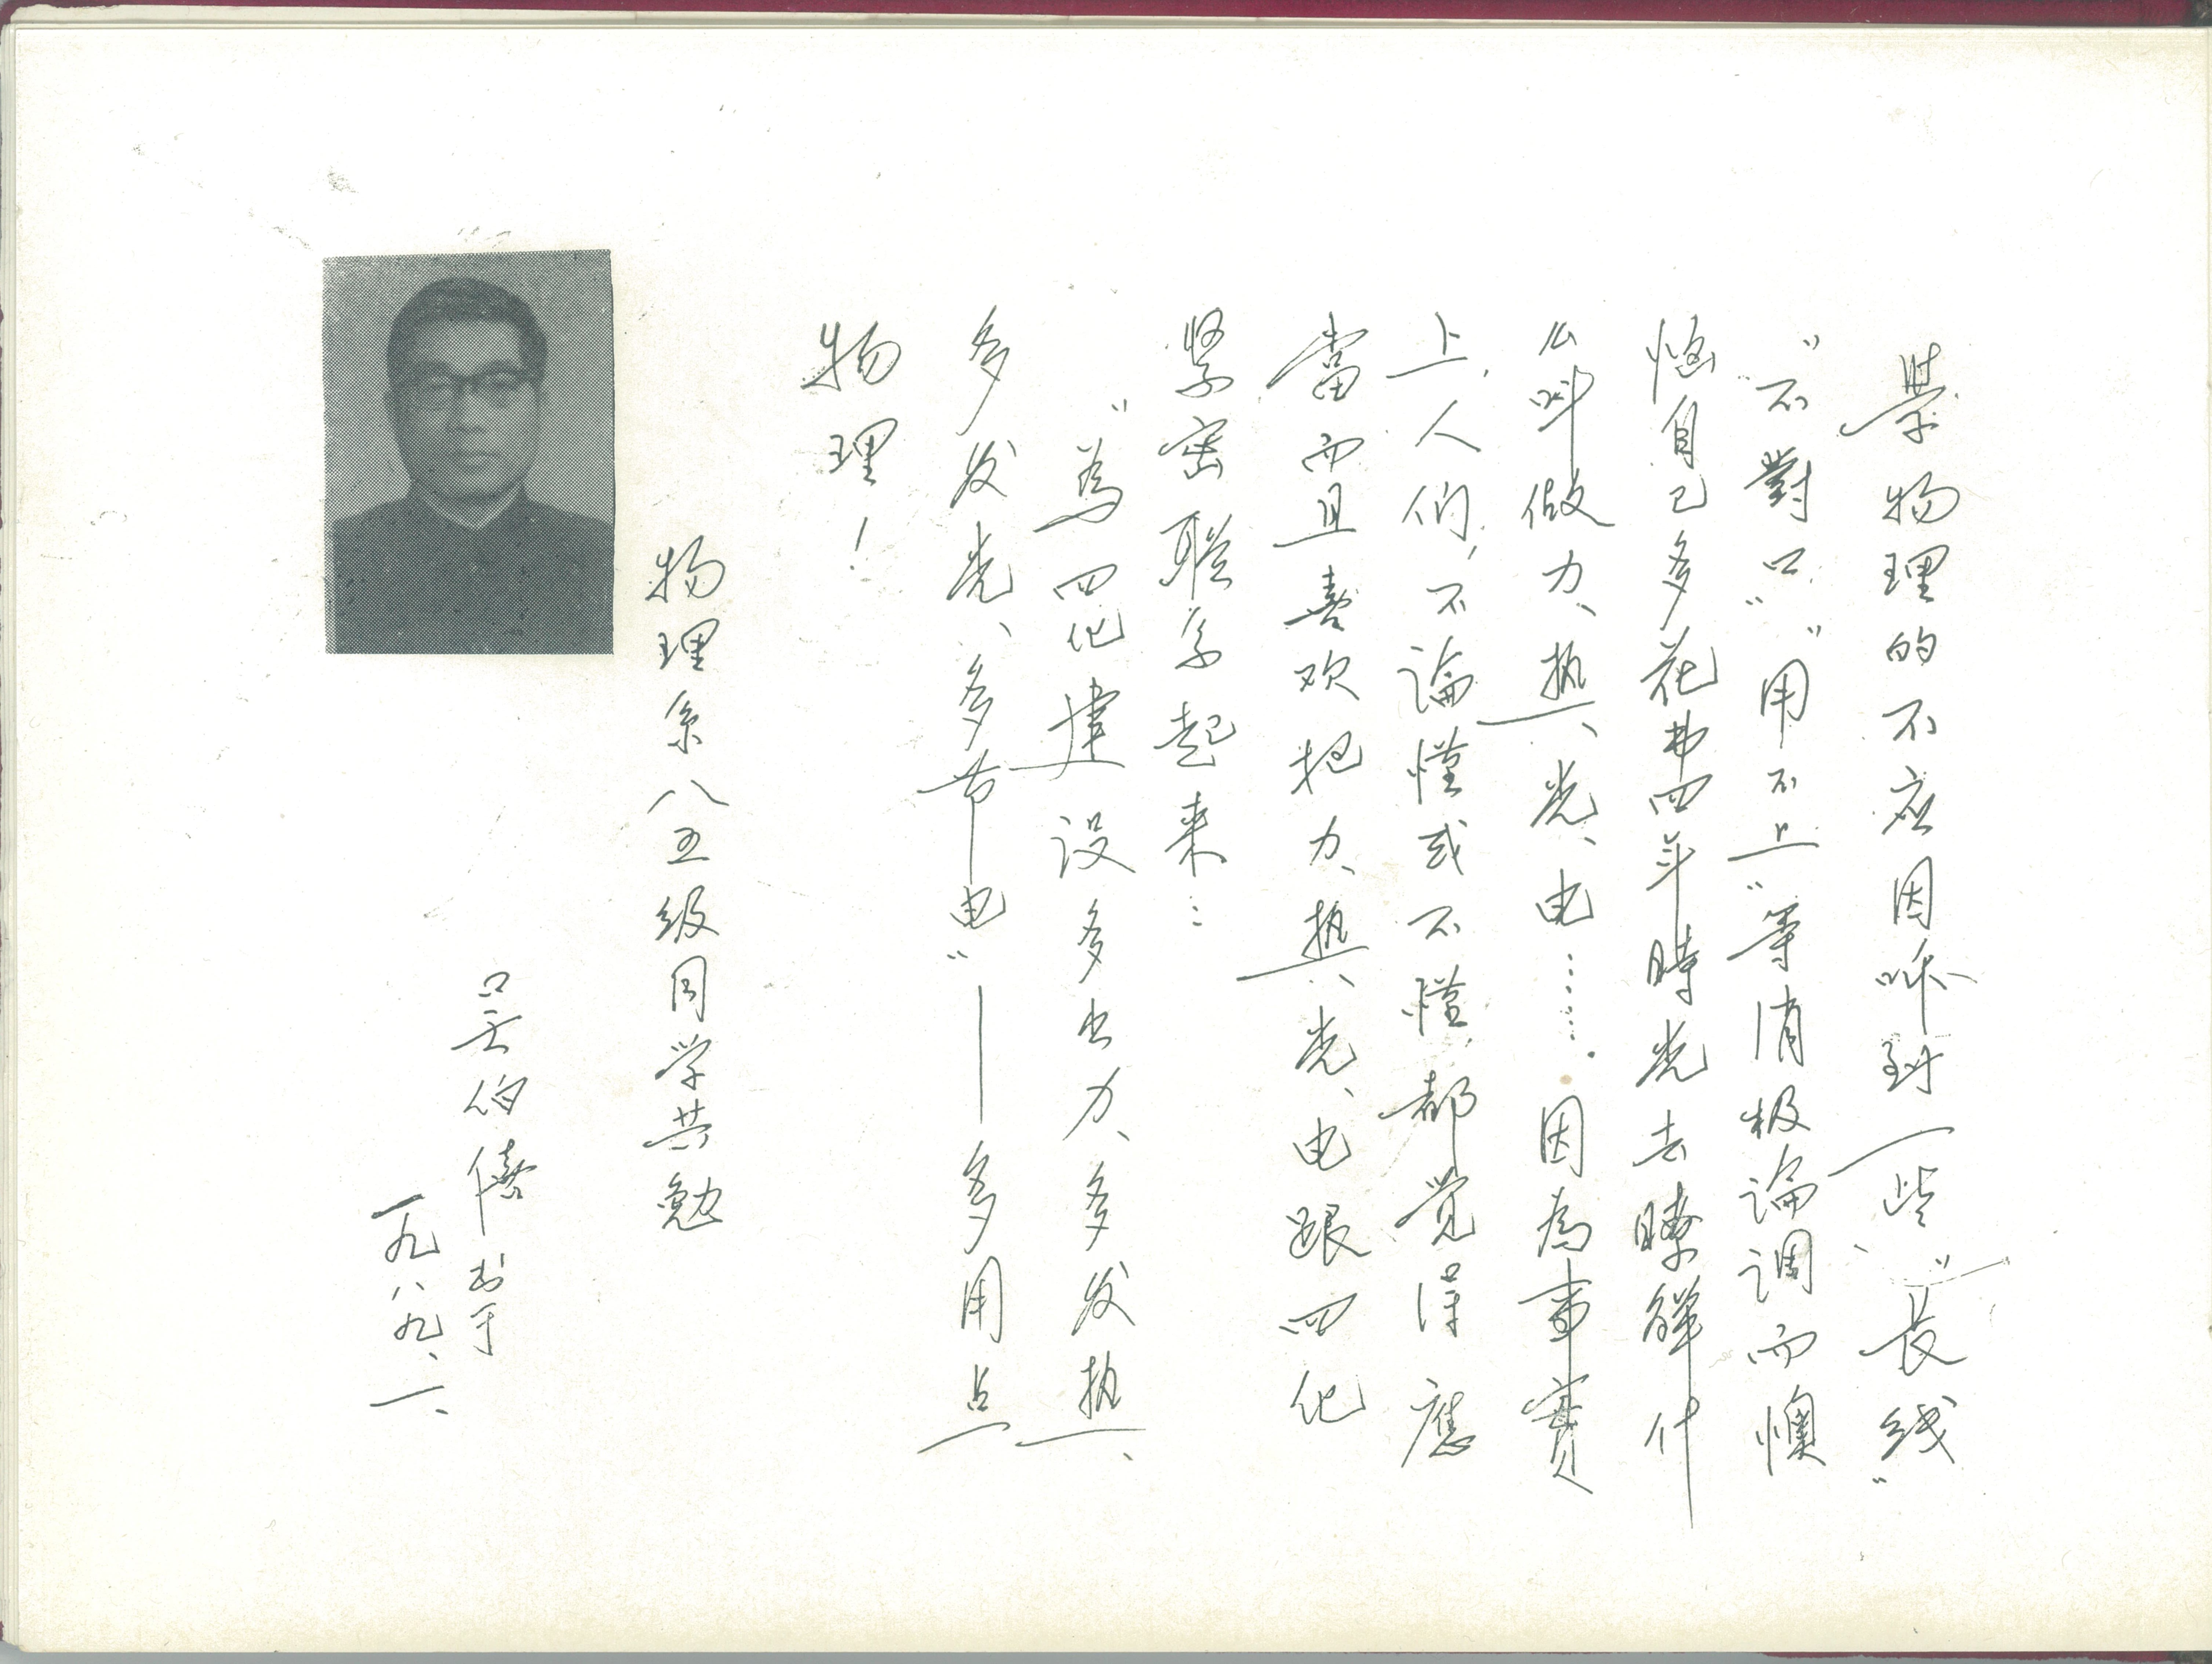 學物理的不应因听到一些"長线"
"不對口""用不上"等消极論调而懊
恼自己多花费四年時光去瞭解什
么叫做力、热、光、电……。因為事實
上,人们,不論懂或不懂,都觉得應
當而且喜欢把力、热、光、电跟四化
紧密联系起来…
"為四化建设多出力、多发热、
多发光、多节电"——多用点
物理!
物理系八五级同学共勉
吴伯僖书于
一九八九、一、